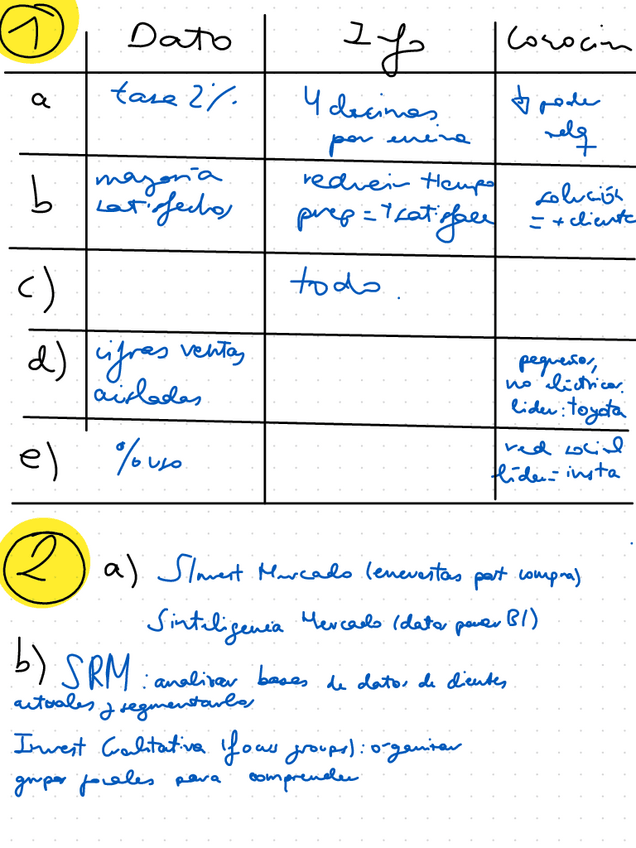 1 Dato Info Conocim
a tasa 2%. 4 décimas ↓ poder
por encima adq
b mayoría reducir tiempo solución
satisfechos prep = ↑ satisface = + cliente
c) todo.
d) cifras ventas pequeños,
aisladas no eléctricos.
lider: toyota
e) % uso red social
líder = insta
2 a) SInvest Mercado (encuestas post compra)
Sinteligencia Mercado (datos power BI)
b) SRM: analizar bases de datos de clientes
actuales y segmentarlos
Invest Cualitativa (focus groups): organizar
grupos focales para comprender